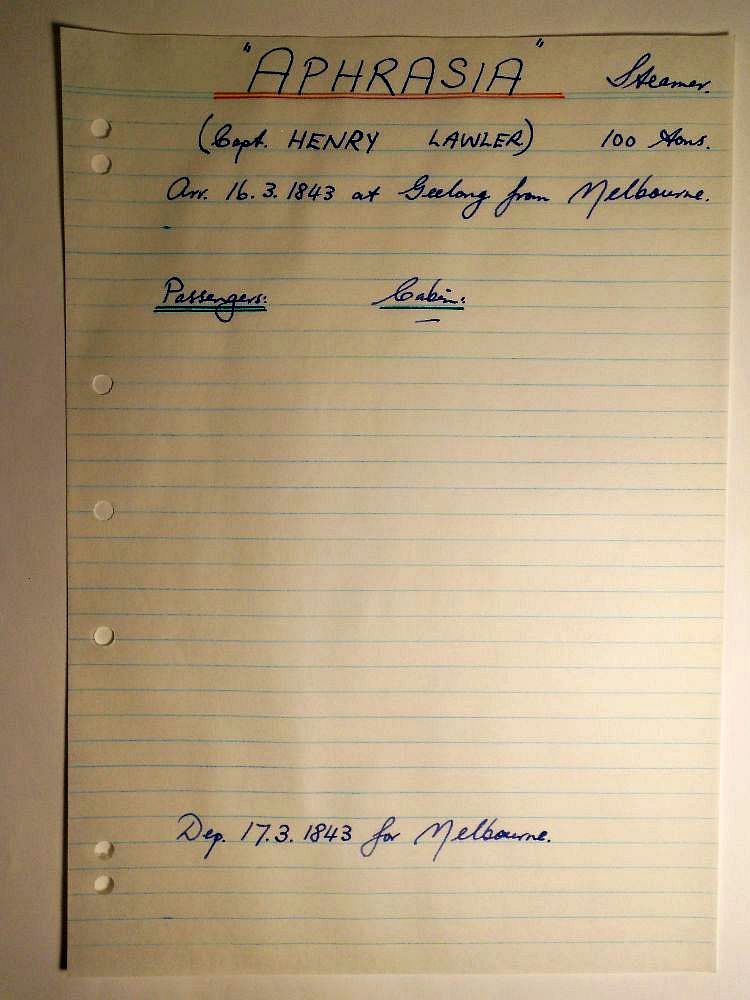 "APHRASIA" Steamer.
(Capt. HENRY LAWLER) 100 tons.
Arr. 16.3.1843 at Geelong from Melbourne.
Passengers: Cabin:
—
Dep. 17.3.1843 for Melbourne.